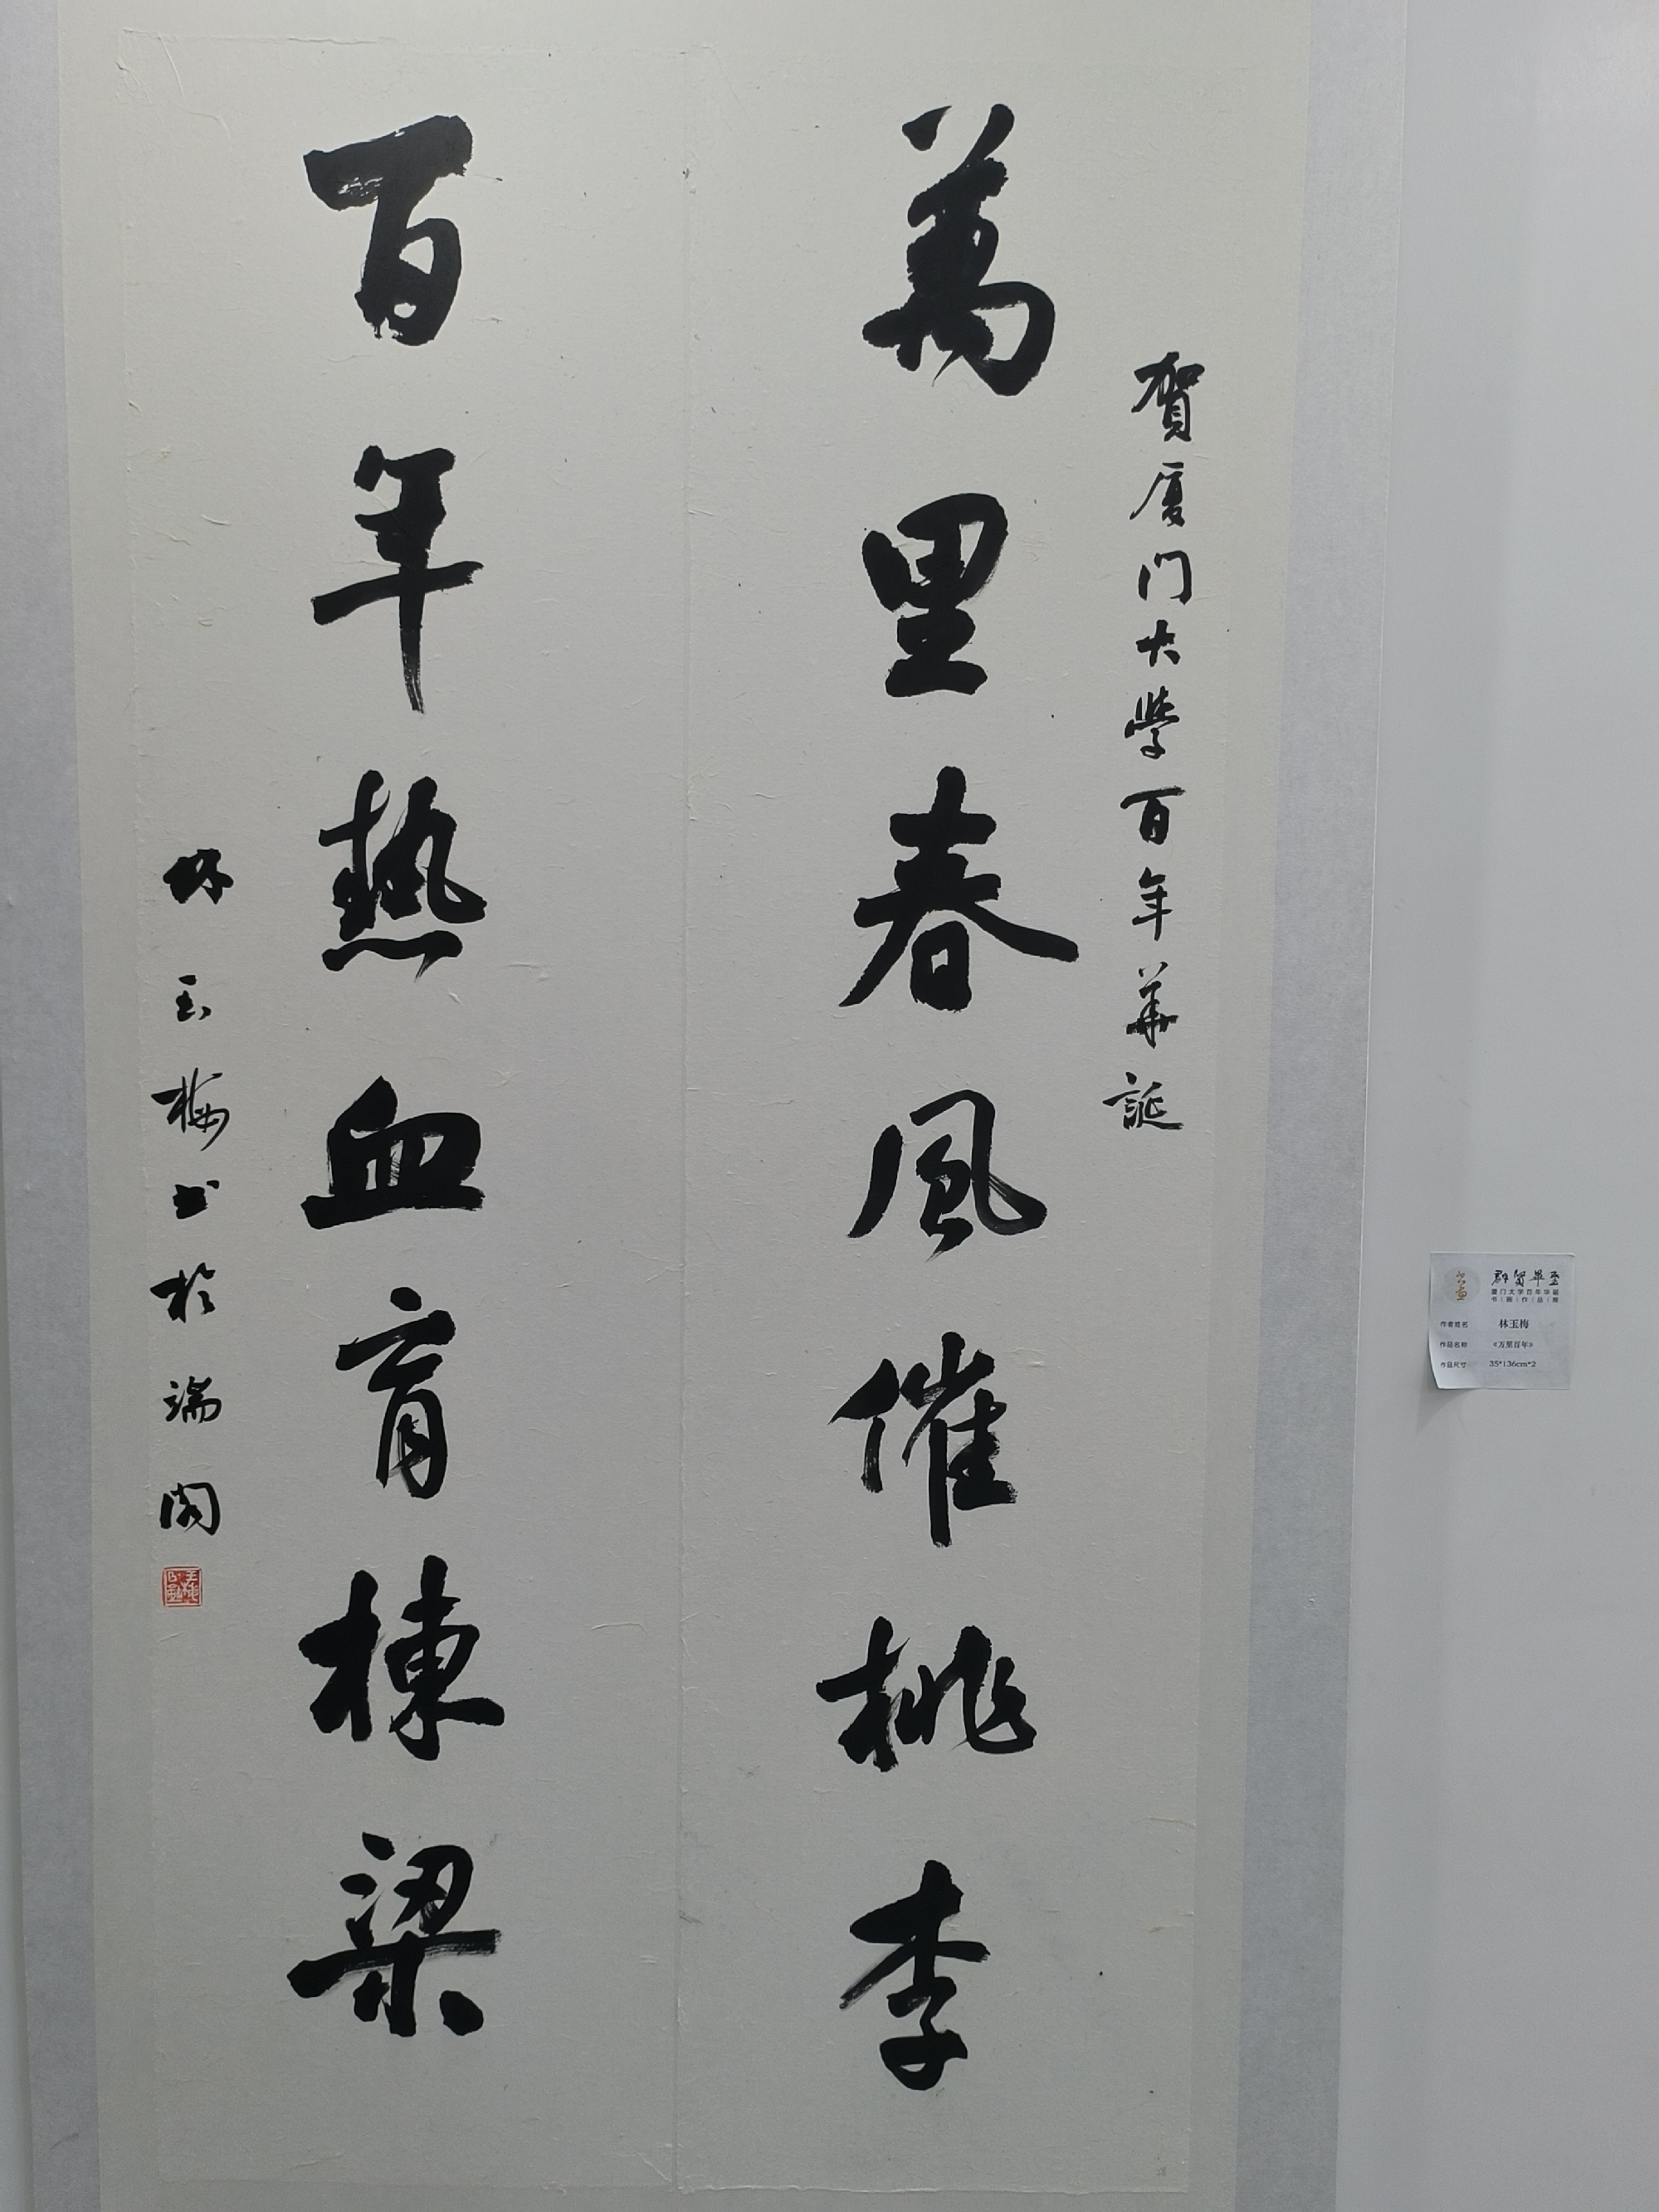 賀厦门大學百年華誕
萬里春風催桃李
百年熱血育棟梁
林玉梅书於端阁
群贤毕至
厦门大学百年华诞
书画作品展
作者姓名 林玉梅
作品名称 《万里百年》
作品尺寸 35*136cm*2